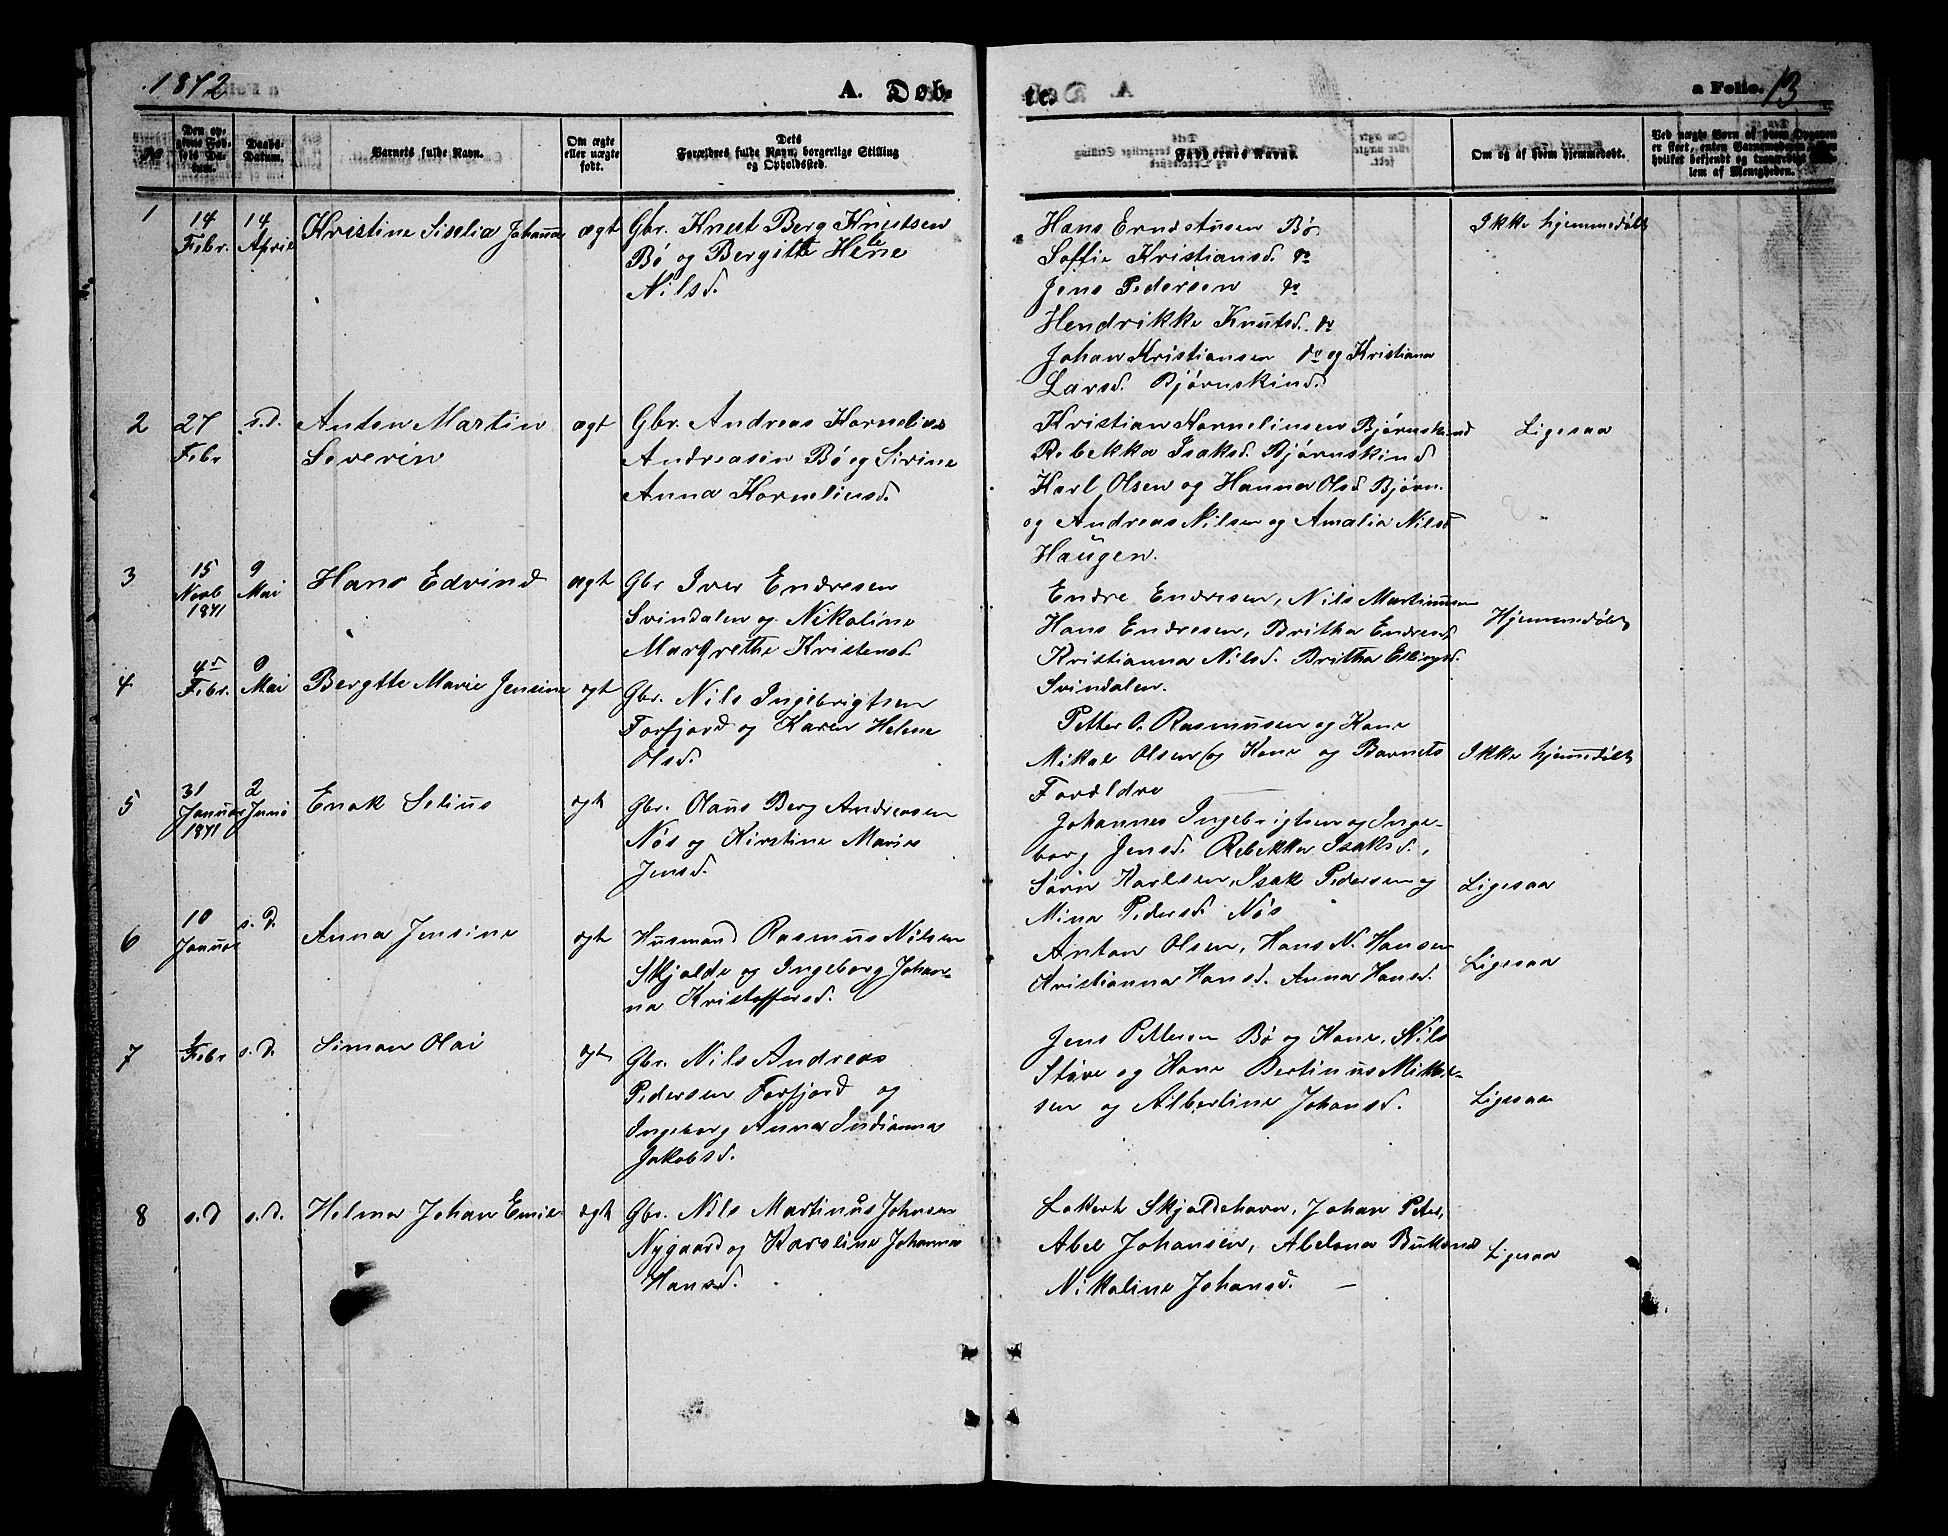 1872
A. Døb-
te.
a Folio. 13
No
Den op-
givne Fød-
sels Da-
tum.
Daabs-
Datum.
Barnets fulde Navn.
Om ægte
eller uægte
født.
Dets
Forældres fulde Navn, borgerlige Stilling
og Opholdssted.
Faddernes Navne.
Om og af hvem hjemmedøbt.
Ved uægte Born af hvem Opgaven
er skeet, enten Barnemoderen eller
hvilket bekjendt og troværdigt Med-
lem af Menigheden.
1
14
Febr.
14
April
Kristine Siselia Johanna
ægt
Gbr. Knut Berg Knutsen
Bø og Bergitte Helene
Nilsd.
Hans Erndstusen Bø
Soffie Kristiansd. do
Jens Pedersen do
Hendrikke Knutsd. do
Johan Kristiansen do og Kristiana
Larsd. Bjørnskind.
Ikke hjemmedøbt
2
27
Febr
s.d.
Anton Martin
Severin
ægt
Gbr. Andreas Kornelius
Andreasen Bø og Sirine
Anna Korneliusd.
Kristian Korneliusen Bjørnskind
Rebekka Isaksd. Bjørnskind
Karl Olsen og Hanna Olsd Bjørn.
og Andreas Nilsen og Amalia Nilsd
Haugen.
Ligesaa
3
15
Novb
1871
9
Mai
Hans Edvind
ægt
Gbr Iver Endresen
Svindalen og Nikoline
Margrethe Kristensd.
Endre Endresen, Nils Martinusen
Hans Endresen, Britha Endresd.
Kristianna Nilsd. Britha Ellingsd.
Svindalen.
Hjemmedøbt
4
4de
Febr.
9
Mai
Bergtte Marie Jensine
ægt
Gbr. Nils Ingebrigtsen
Forfjord og Karen Helene
Olsd.
Petter O. Rasmusen og Kone
Mikal Olsen og Kone og Barnets
Forældre
Ikke hjemedøbt
5
31
Januar
1871
2
Juni
Enok Selius
ægt
Gbr. Olaus Berg Andreasen
Nøs og Kirstine Marie
Jensd.
Johannes Ingebrigtsen og Inge-
borg Jensd. Rebekka Isaksd,
Sørn Karlsen, Isak Pedersen og
Mina Pedersd. Nøs
Ligesaa
6
10
Januar
s.d.
Anna Jensine
ægt
Husmand Rasmus Nilsen
Skjolde og Ingeborg Johan-
na Kristoffersd.
Anton Olsen, Hans N. Hansen
Kristianna Hansd. Anna Hansd.
Ligesaa
7
Febr
s.d.
Simon Olai
ægt
Gbr. Nils Andreas
Pedersen Forfjord og
Ingeborg Anna Indianna
Jakobsd.
Jens Pettersen Bø og Kone, Nils
Støve og Kone Bertinus Mikkel-
sen og Albertine Johansd.
Ligesaa
8
s.d
s.d.
Helmer Johan Emil
ægt
Gbr. Nils Martinus Johnsen
Nygaard og Karoline Johanna
Hansd.
Lokert Skjoldehavn, Johan Peter,
Abel Johansen, Abelona
Nikoline Johansd. —
Ligesaa